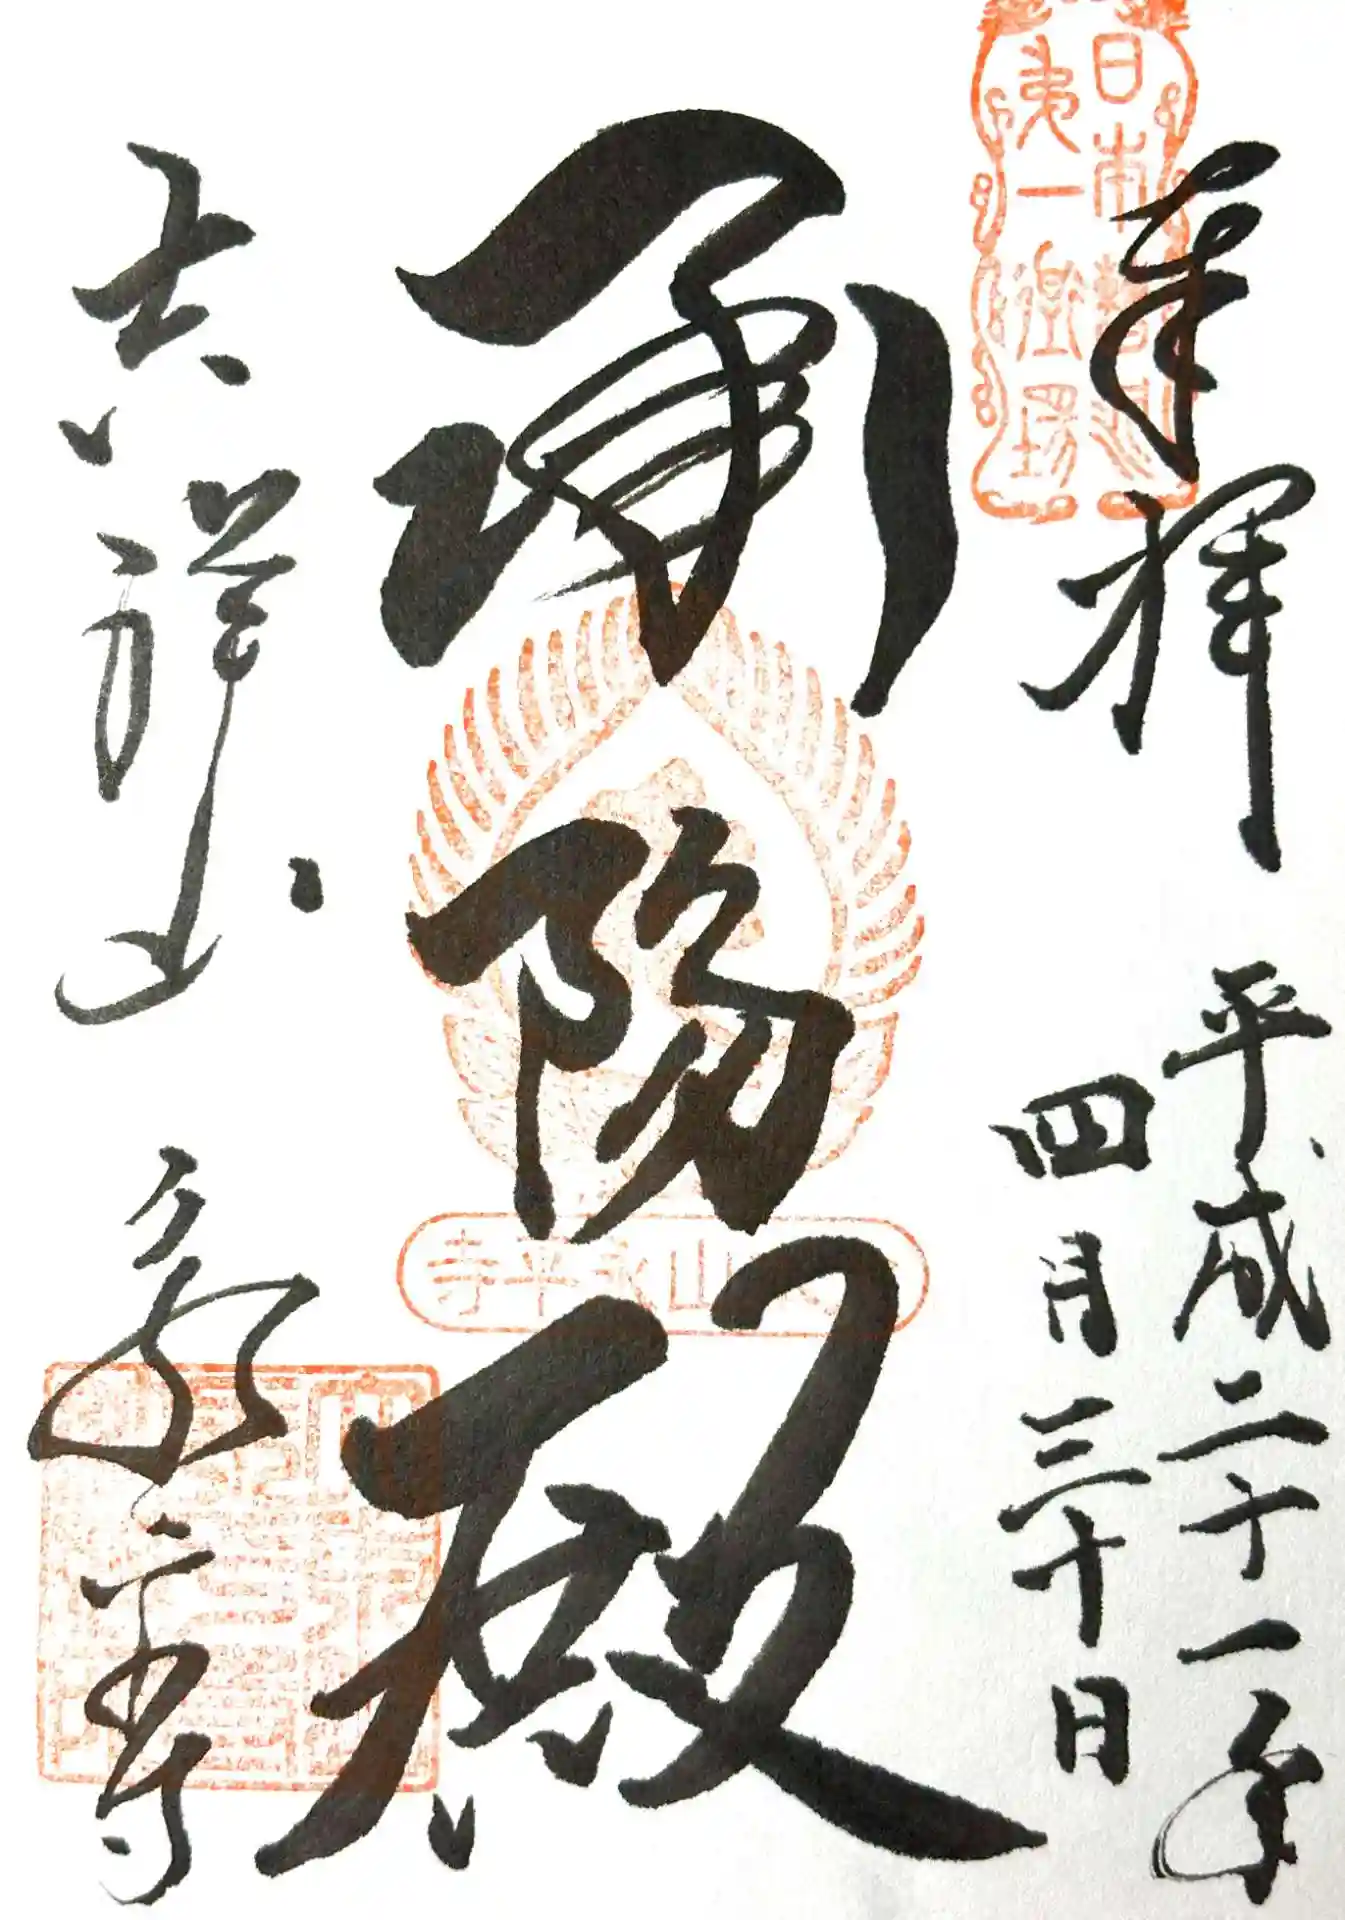 日本曹洞
第一道場
奉拝 平成二十一年
四月三十日
承陽殿
山永平寺
吉祥山 永平寺